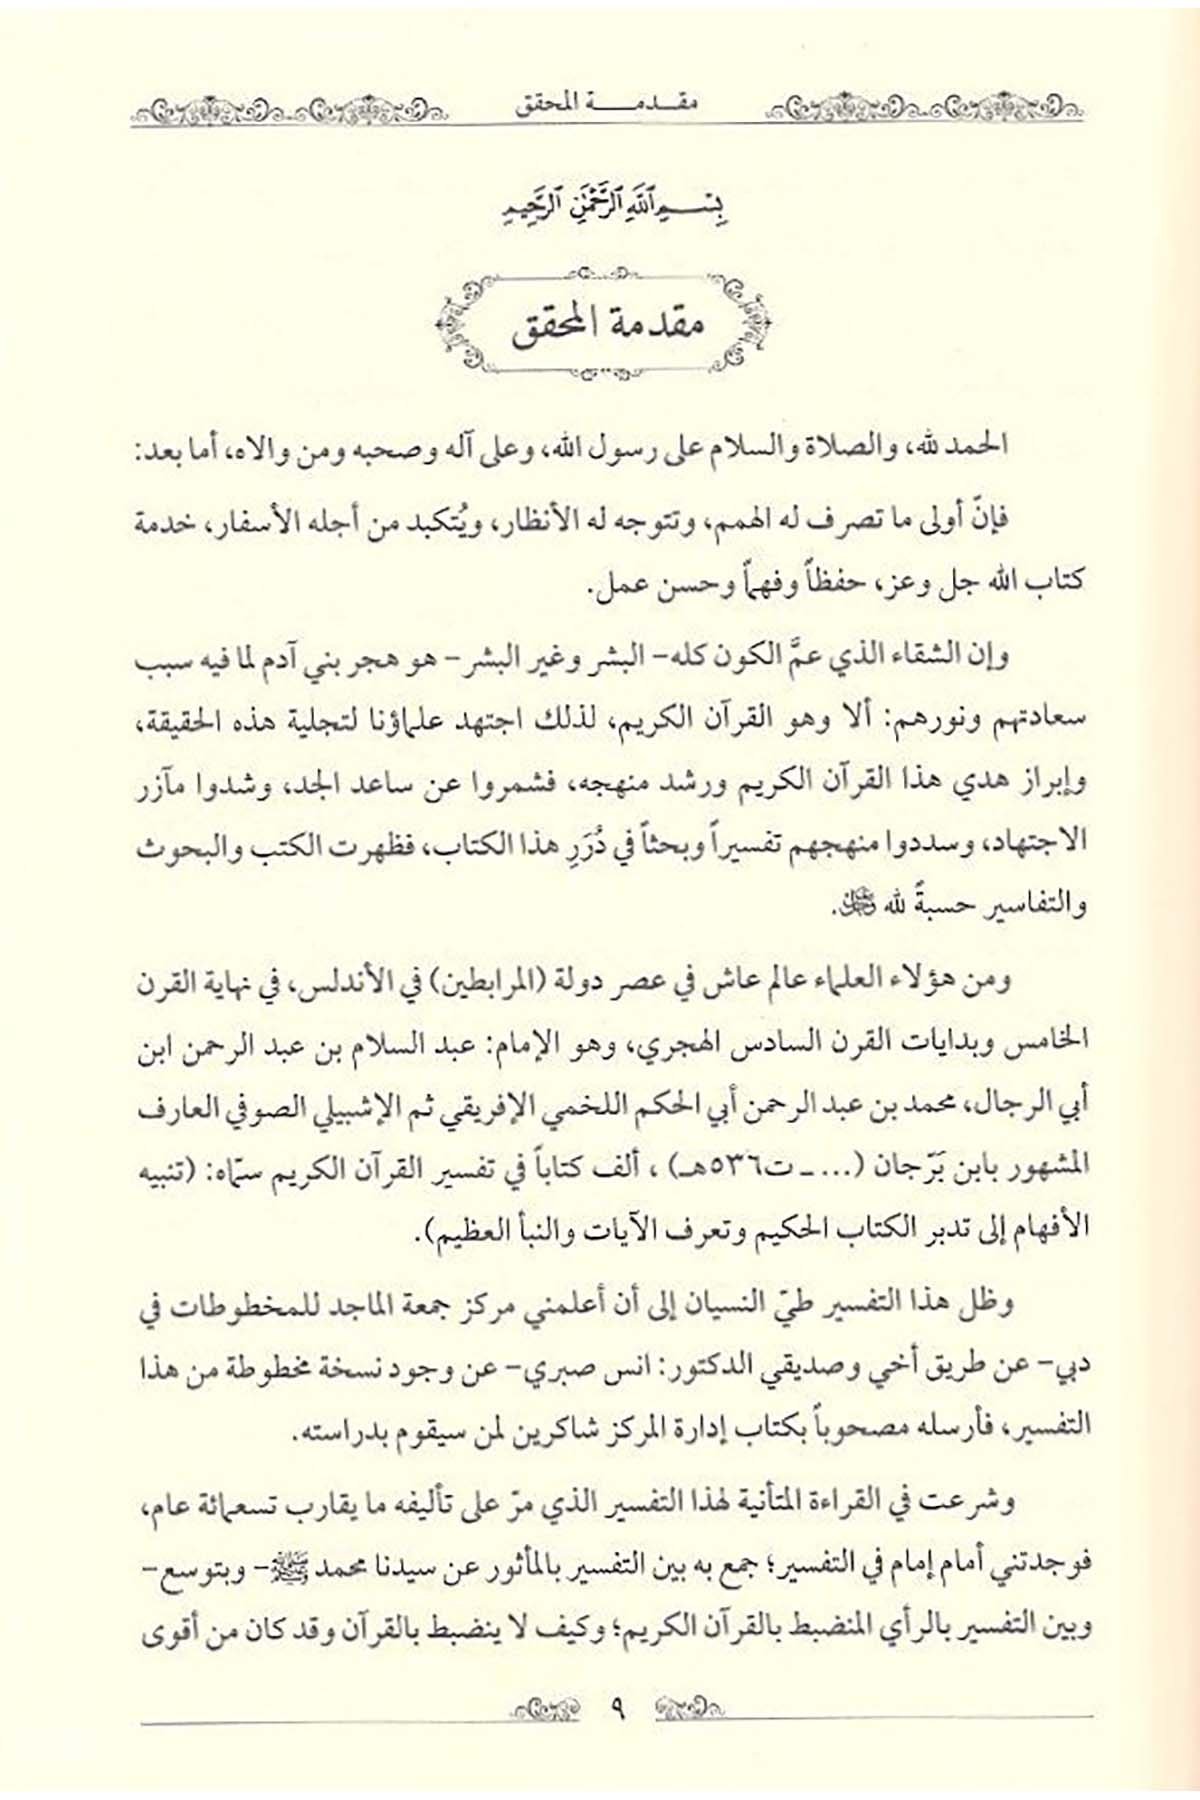 مقدمة المحقق
بسم الله الرحمن الرحيم
مقدمة المحقق
الحمد لله، والصلاة والسلام على رسول الله، وعلى آله وصحبه ومن والاه، أما بعد:
فإنّ أولى ما تصرف له الهمم، وتتوجه له الأنظار، ويُتكبد من أجله الأسفار، خدمة
كتاب الله جل وعز، حفظاً وفهماً وحسن عمل.
وإن الشقاء الذي عمَّ الكون كله- البشر وغير البشر- هو هجر بني آدم لما فيه سبب
سعادتهم ونورهم: ألا وهو القرآن الكريم، لذلك اجتهد علماؤنا لتجلية هذه الحقيقة،
وإبراز هدي هذا القرآن الكريم ورشد منهجه، فشمروا عن ساعد الجد، وشدوا مآزر
الاجتهاد، وسددوا منهجهم تفسيراً وبحثاً في دُرَرِ هذا الكتاب، فظهرت الكتب والبحوث
والتفاسير حسبةً لله ﷻ.
ومن هؤلاء العلماء عالم عاش في عصر دولة (المرابطين) في الأندلس، في نهاية القرن
الخامس وبدايات القرن السادس الهجري، وهو الإمام: عبد السلام بن عبد الرحمن ابن
أبي الرجال، محمد بن عبد الرحمن أبي الحكم اللخمي الإفريقي ثم الإشبيلي الصوفي العارف
المشهور بابن بَرّجان (... ـ ت٥٣٦هـ) ، ألف كتاباً في تفسير القرآن الكريم سمّاه: (تنبيه
الأفهام إلى تدبر الكتاب الحكيم وتعرف الآيات والنبأ العظيم).
وظل هذا التفسير طيّ النسيان إلى أن أعلمني مركز جمعة الماجد للمخطوطات في
دبي- عن طريق أخي وصديقي الدكتور: انس صبري- عن وجود نسخة مخطوطة من هذا
التفسير، فأرسله مصحوباً بكتاب إدارة المركز شاكرين لمن سيقوم بدراسته.
وشرعت في القراءة المتأنية لهذا التفسير الذي مرّ على تأليفه ما يقارب تسعمائة عام،
فوجدتني أمام إمام في التفسير؛ جمع به بين التفسير بالمأثور عن سيدنا محمد ﷺ- وبتوسع-
وبين التفسير بالرأي المنضبط بالقرآن الكريم؛ وكيف لا ينضبط بالقرآن وقد كان من أقوى
٩